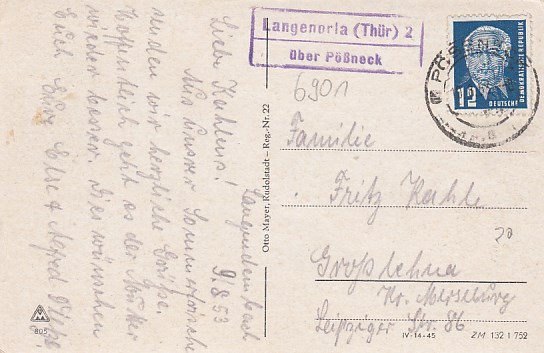 Langenorla (Thür) 2
über Pößneck
6901
PÖSSNECK
12
DEUTSCHE
DEMOKRATISCHE REPUBLIK
Langendembach
9/8 53
Liebe Kahlens!
Aus unserer Sommerfrische
senden wir herzliche Grüße.
Hoffentlich geht es der Mutter
wieder besser. Dies wünschen
Euch Eure Else &
Otto Mayer, Rudolstadt – Reg.-Nr. 22
Familie
Fritz Kahle
20
Großlehna
Kr. Merseburg
Leipziger Str. 86
895
IV-14-45
ZM 132 1 752